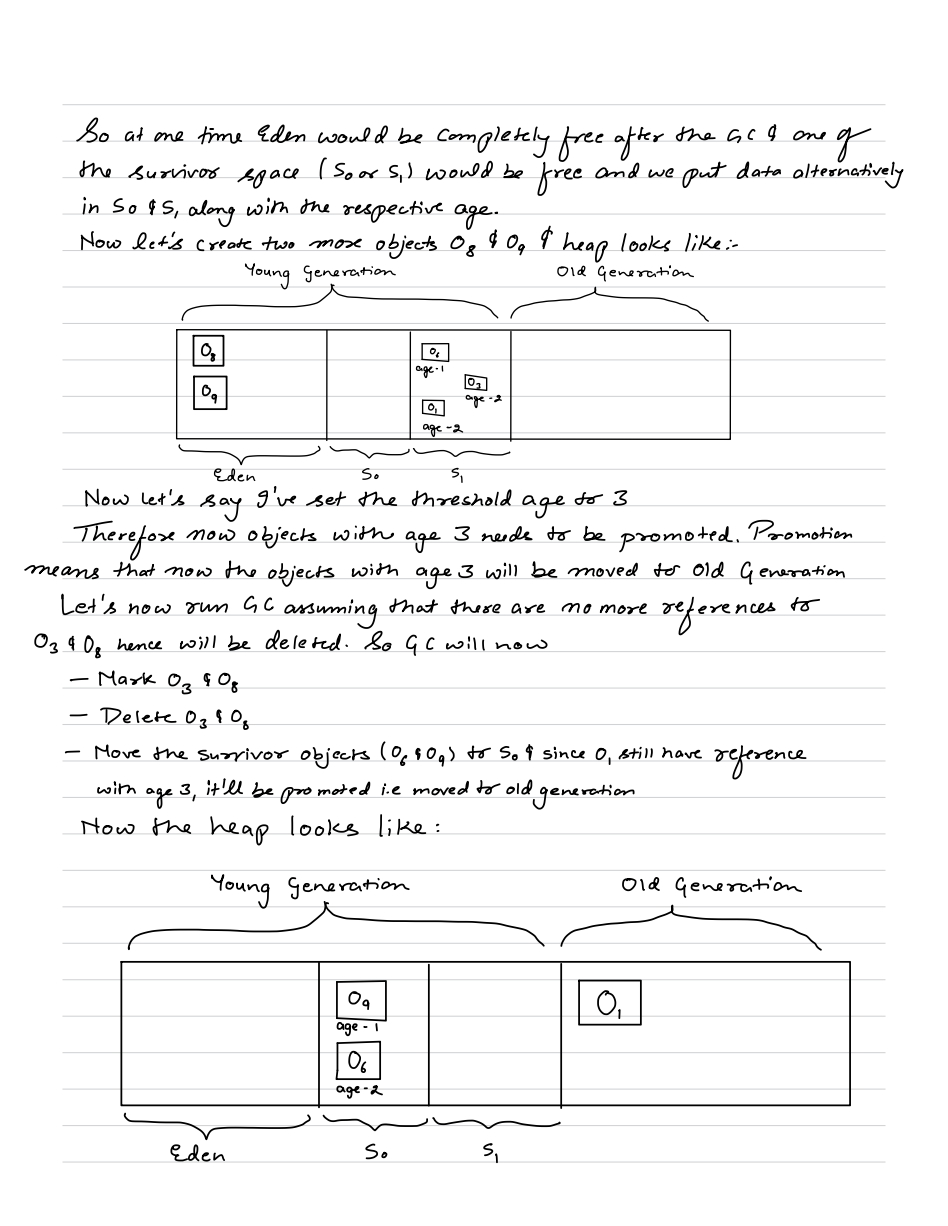 So at one time Eden would be completely free after the GC & one of
the survivor space (S0 or S1) would be free and we put data alternatively
in S0 & S1 along with the respective age.
Now let's create two more objects O8 & O9 & heap looks like:-
Young Generation Old Generation
O8 O6
age-1 O3
O9 age-2
O1
age-2
Eden S0 S1
Now let's say I've set the threshold age to 3
Therefore now objects with age 3 needs to be promoted. Promotion
means that now the objects with age 3 will be moved to Old Generation
Let's now run GC assuming that there are no more references to
O3 & O8 hence will be deleted. So GC will now
— Mark O3 & O8
— Delete O3 & O8
— Move the survivor objects (O6 & O9) to S0 & since O1 still have reference
with age 3, it'll be promoted i.e moved to old generation
Now the heap looks like:
Young Generation Old Generation
O9 O1
age-1
O6
age-2
Eden S0 S1